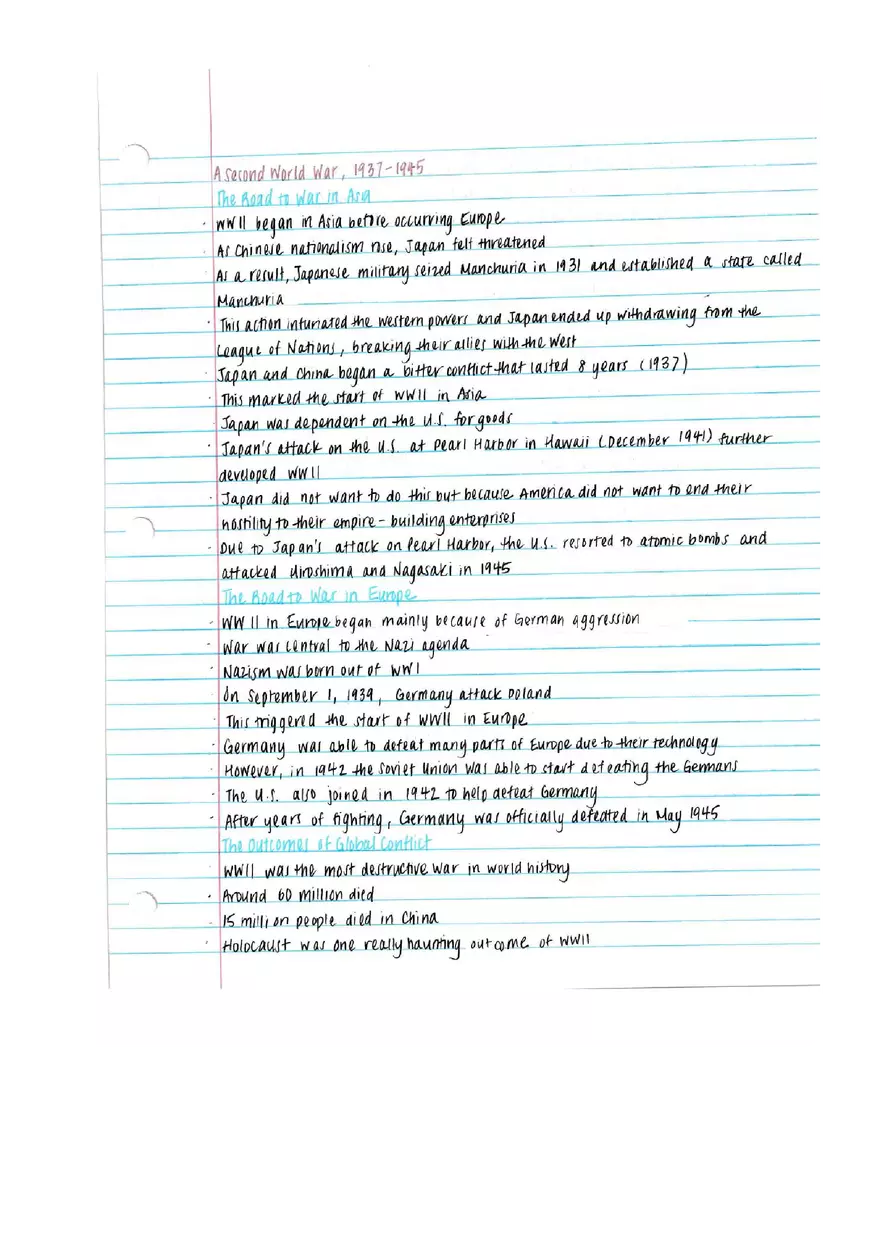 A Second World War, 1937-1945
The Road to War in Asia
· WWII began in Asia before occurring Europe
· As Chinese nationalism rise, Japan felt threatened
· As a result, Japanese military seized Manchuria in 1931 and established a state called
Manchuria
· This action infuriated the western powers and Japan ended up withdrawing from the
League of Nations, breaking their allies with the West
· Japan and China began a bitter conflict that lasted 8 years (1937)
· This marked the start of WWII in Asia
· Japan was dependent on the U.S. for goods
· Japan's attack on the U.S. at Pearl Harbor in Hawaii (December 1941) further
developed WWII
· Japan did not want to do this but because America did not want to end their
hostility to their empire-building enterprises
· Due to Japan's attack on Pearl Harbor, the U.S. resorted to atomic bombs and
attacked Hiroshima and Nagasaki in 1945
The Road to War in Europe
· WWII in Europe began mainly because of German aggression
· War was central to the Nazi agenda
· Nazism was born out of WWI
· On September 1, 1939, Germany attack Poland
· This triggered the start of WWII in Europe
· Germany was able to defeat many parts of Europe due to their technology
· However, in 1942 the Soviet Union was able to start defeating the Germans
· The U.S. also joined in 1942 to help defeat Germany
· After years of fighting, Germany was officially defeated in May 1945
The Outcomes of Global Conflict
· WWII was the most destructive war in world history
· Around 60 million died
· 15 million people died in China
· Holocaust was one really haunting outcome of WWII